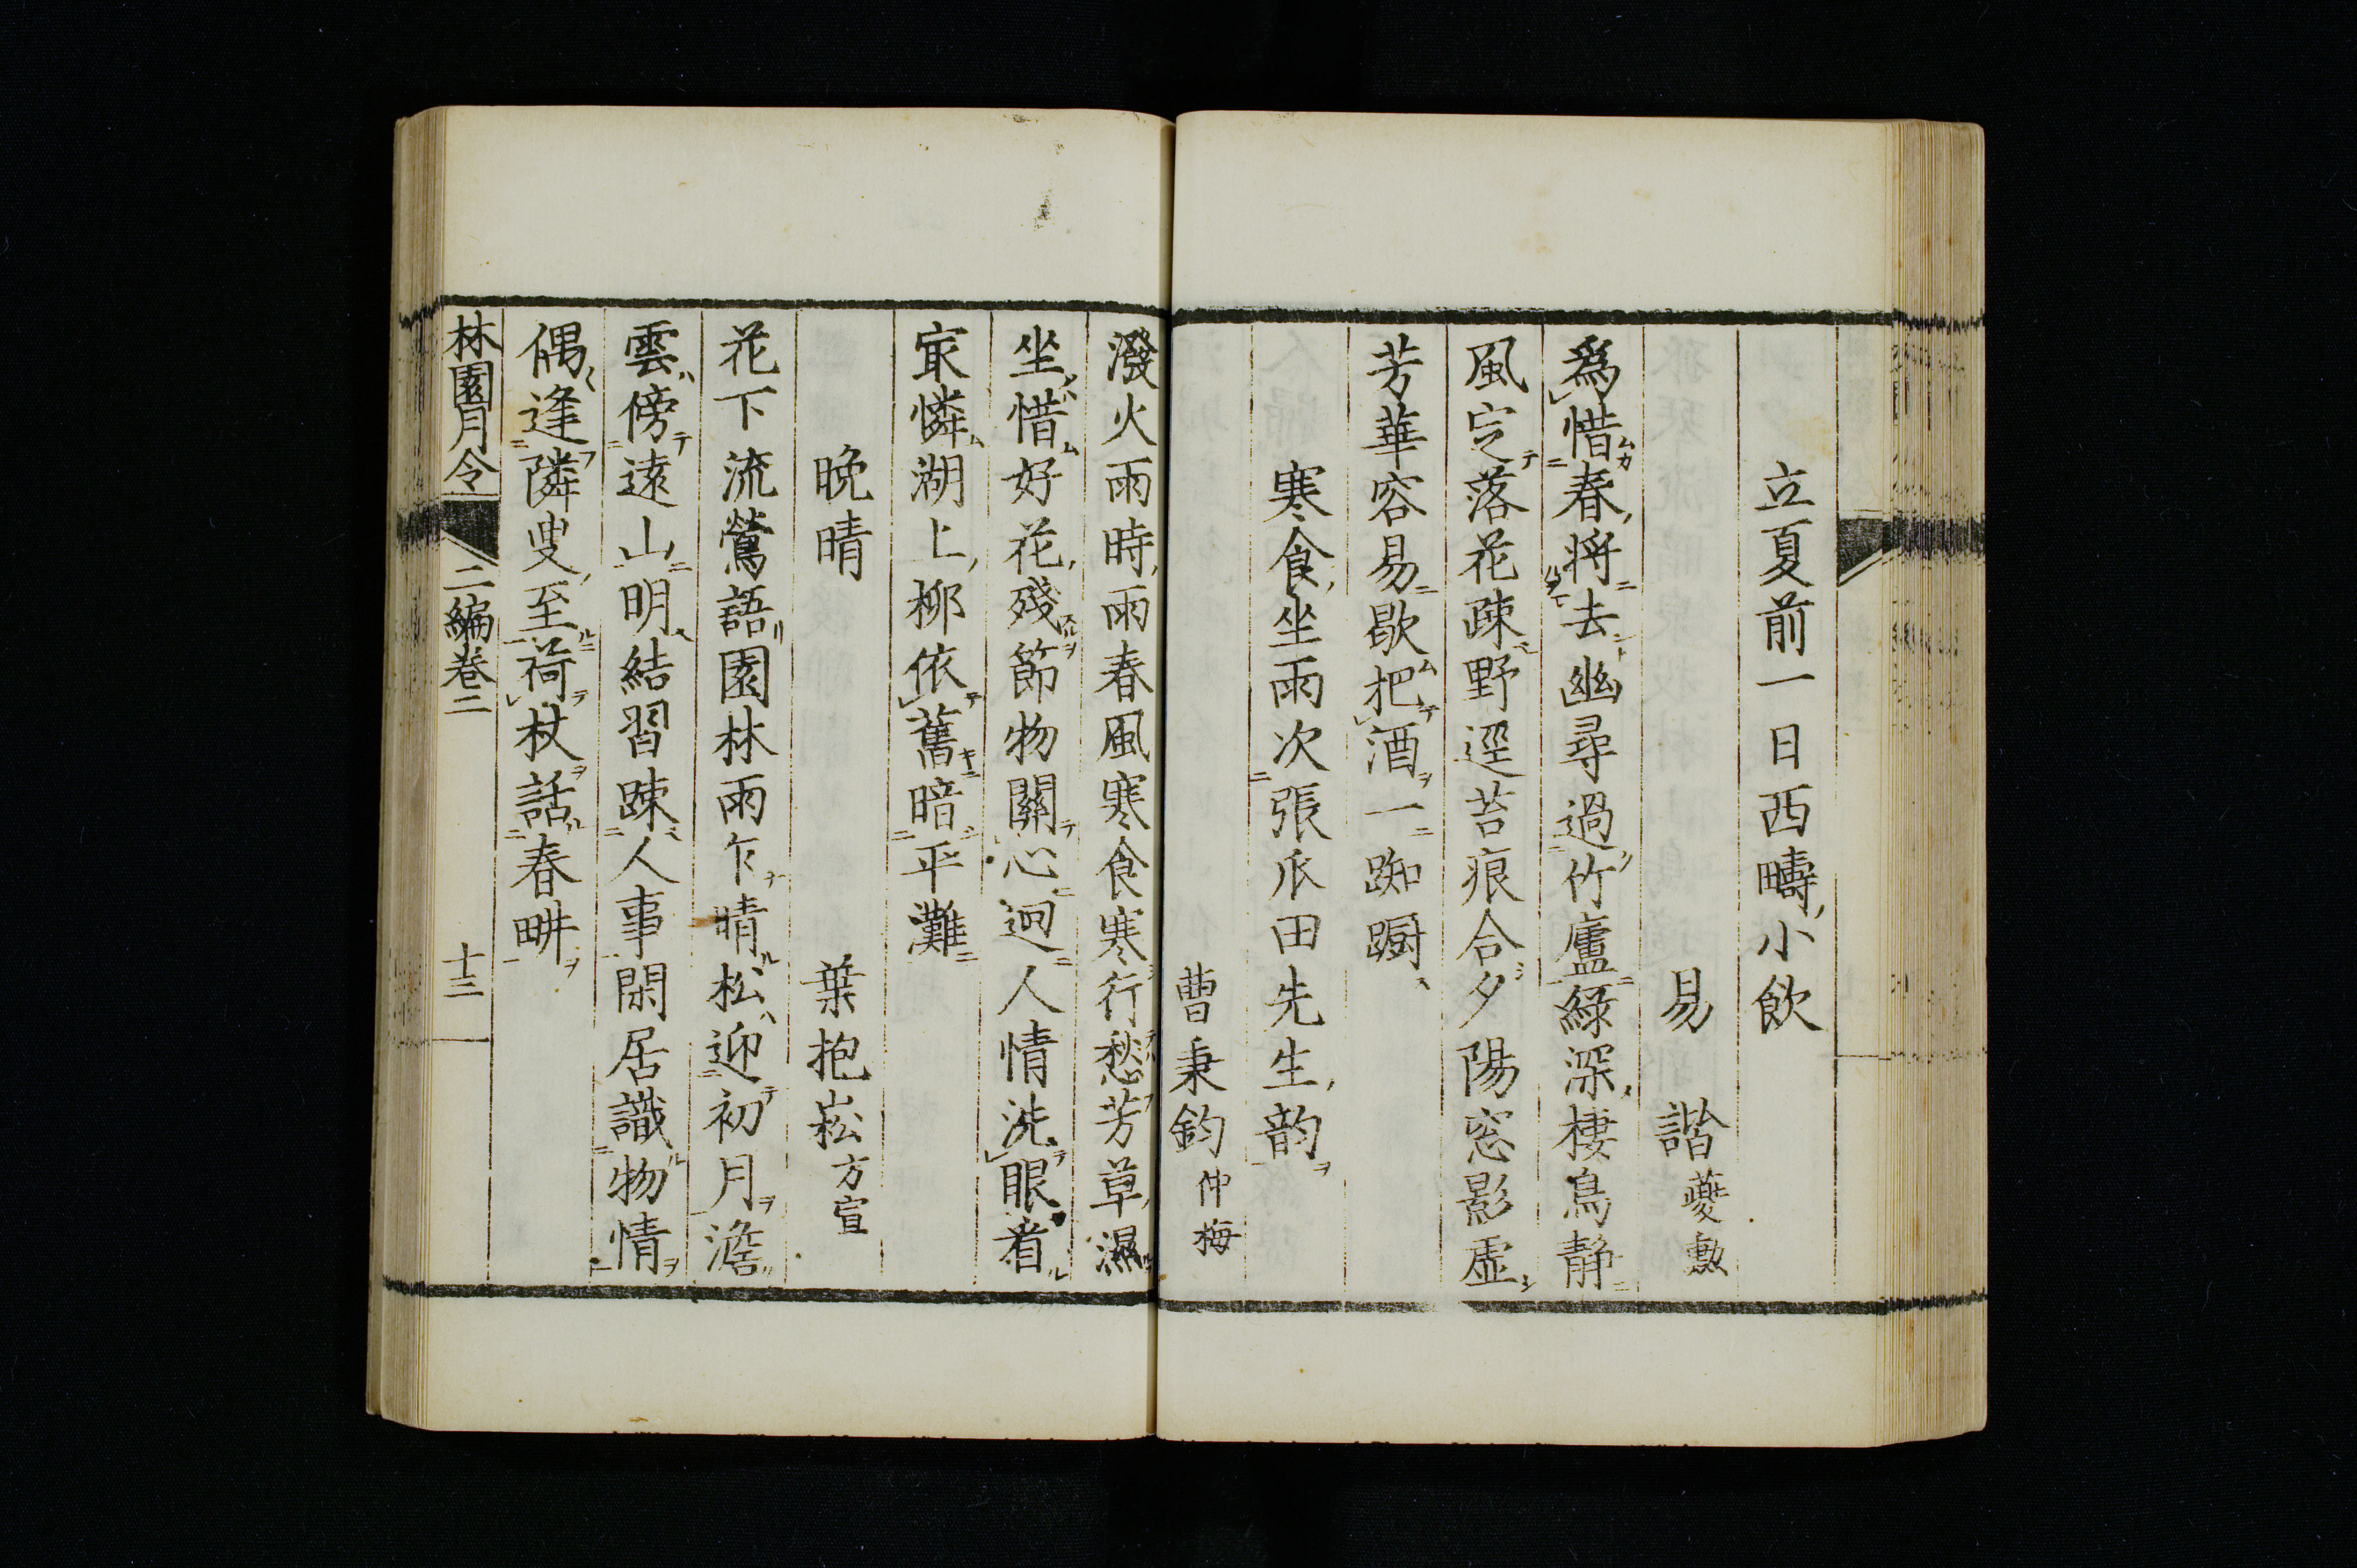 立夏前一日西疇小飲
易　諧 夔勲
爲惜春將去幽尋過竹廬綠深棲鳥靜
風定落花疎野逕苔痕合夕陽窓影虛
芳華容易歇把酒一踟蹰
寒食坐雨次張瓜田先生韵
曹秉鈞 仲梅
潑火雨時雨春風寒食寒行愁芳草濕
坐惜好花殘節物關心迥人情洗眼看
㝡憐湖上柳依舊暗平灘
晩晴　葉抱崧 方宣
花下流鶯語園林雨乍晴松迎初月澹
雲傍遠山明結習踈人事閑居識物情
偶逢隣叟至荷杖話春畊
林園月令　二編卷二　十三